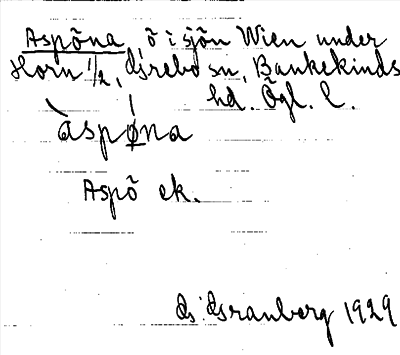 Aspöna ö i sjön Wien under
Horn 1/2, Grebo sn, Bankekinds
hd. Ögl. l.
àspøna
Aspö ek.
G. Granberg 1929